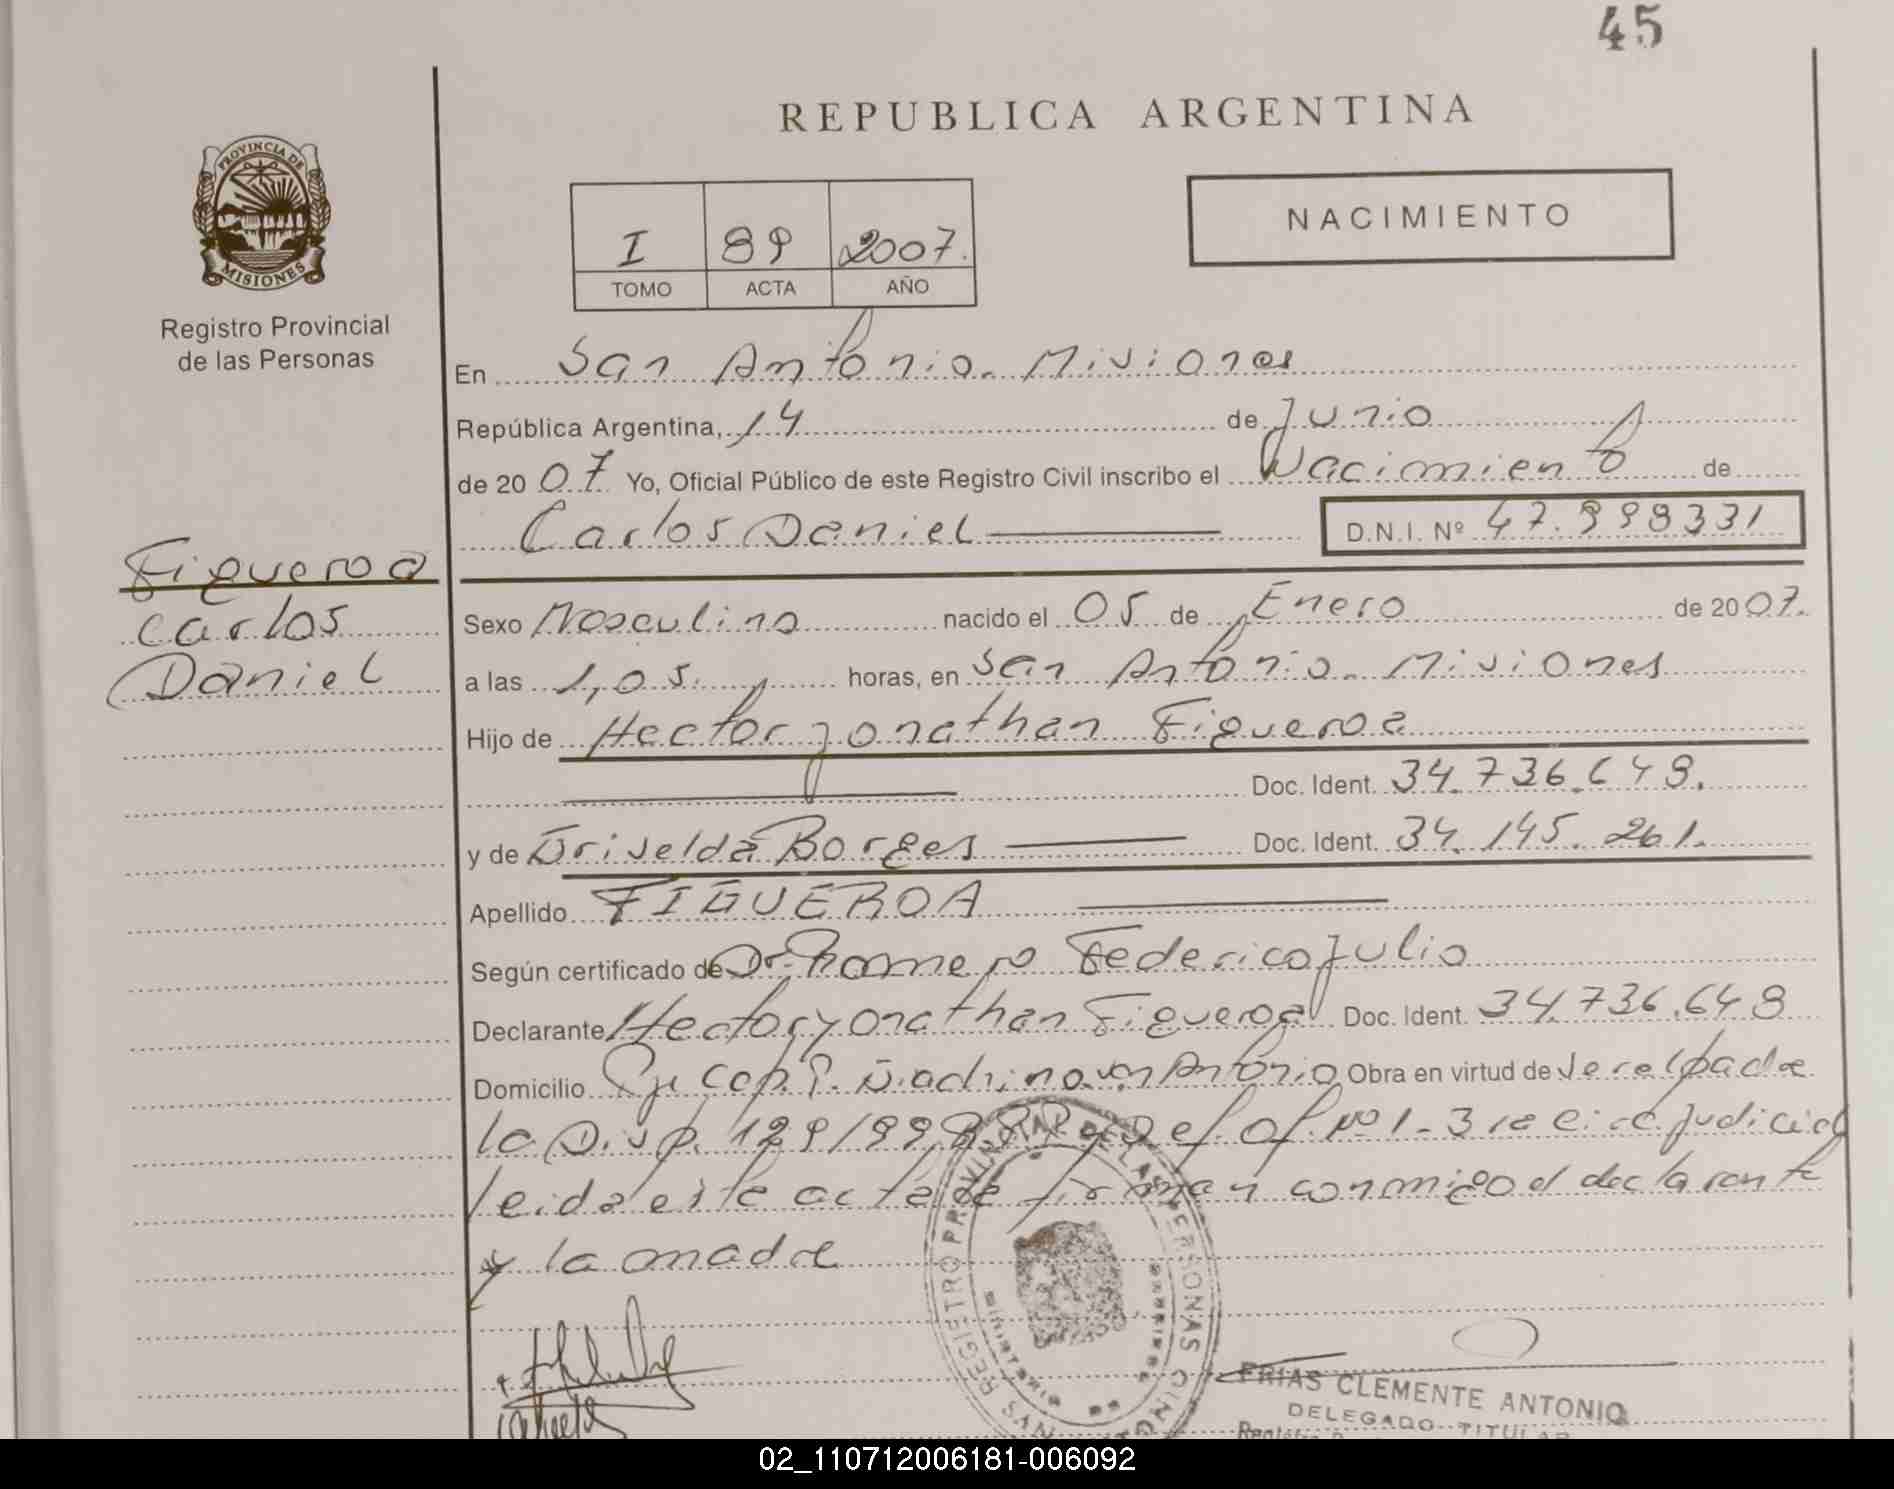 45
REPUBLICA ARGENTINA
PROVINCIA DE
MISIONES
Registro Provincial
de las Personas
NACIMIENTO
I 89 2007.
TOMO ACTA AÑO
En San Antonio. Misiones
República Argentina, 14 de Junio
de 2007 Yo, Oficial Público de este Registro Civil inscribo el Nacimiento de
Carlos Daniel D.N.I. Nº 47.998331
Figueroa
Carlos
Daniel
Sexo Masculino nacido el 05 de Enero de 2007.
a las 1,05. horas, en San Antonio. Misiones
Hijo de Hector Jonathan Figueroa
Doc. Ident. 34.736.648.
y de Griselda Borges Doc. Ident. 34.145.261.
Apellido FIGUEROA
Según certificado de Dr. Romero Federico Julio
Declarante Hector Jonathan Figueroa Doc. Ident. 34.736.648
Domicilio Antonio Obra en virtud de ser el padre
la Disp. Def. of. Nº 1 - 3ra Circ. judicial
leida este acta firman conmigo el declarante
y la madre
REGISTRO PROVINCIAL DE LAS PERSONAS
MINISTERIO
SAN
FRIAS CLEMENTE ANTONIO
DELEGADO TITULAR
02_110712006181-006092